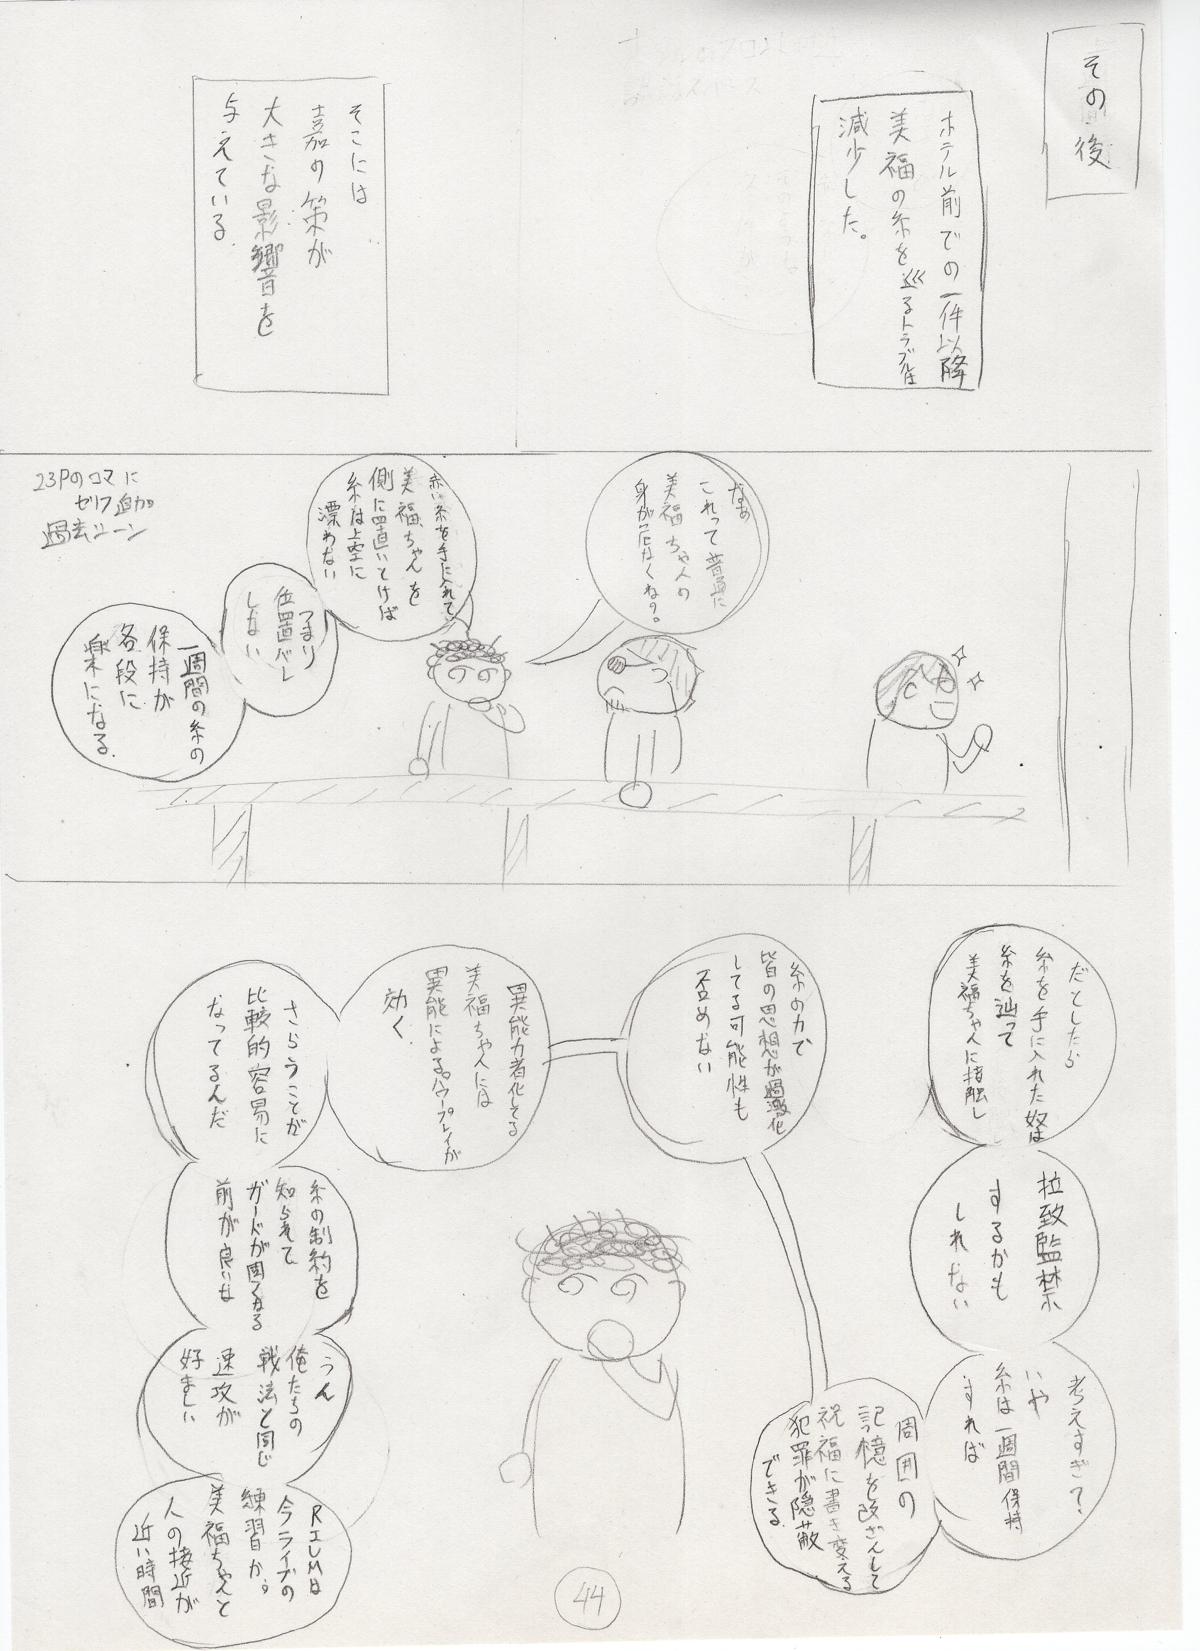 その後
ホテル前での一件以降
美福の糸を巡るトラブルは
減少した。
そこには
嘉の策が
大きな影響を
与えている。
なぁ
これって普通に
美福ちゃんの
身が危なくね?
赤い糸を手に入れて
美福ちゃんを
側に置いとけば
糸は上空に
漂わない
つまり
位置バレ
しない
一週間の糸の
保持が
各段に
楽になる。
23Pのコマに
セリフ追加
過去シーン
だとしたら
糸を手に入れた奴は
糸を辿って
美福ちゃんに接触し
拉致監禁
するかも
しれない
考えすぎ?
いや
糸は一週間保持
すれば
周囲の
記憶を改ざんして
祝福に書き変える
犯罪が隠蔽
できる。
糸の力で
皆の思想が過激化
してる可能性も
否めない
異能力者化してる
美福ちゃんには
異能によるパワープレイが
効く。
さらうことが
比較的容易に
なってるんだ
糸の制約を
知られて
ガードが固くなる
前が良いな
うん
俺たちの
戦法と同じ
速攻が
好ましい
RILMは
今ライブの
練習か。
美福ちゃんと
人の接近が
近い時間
44